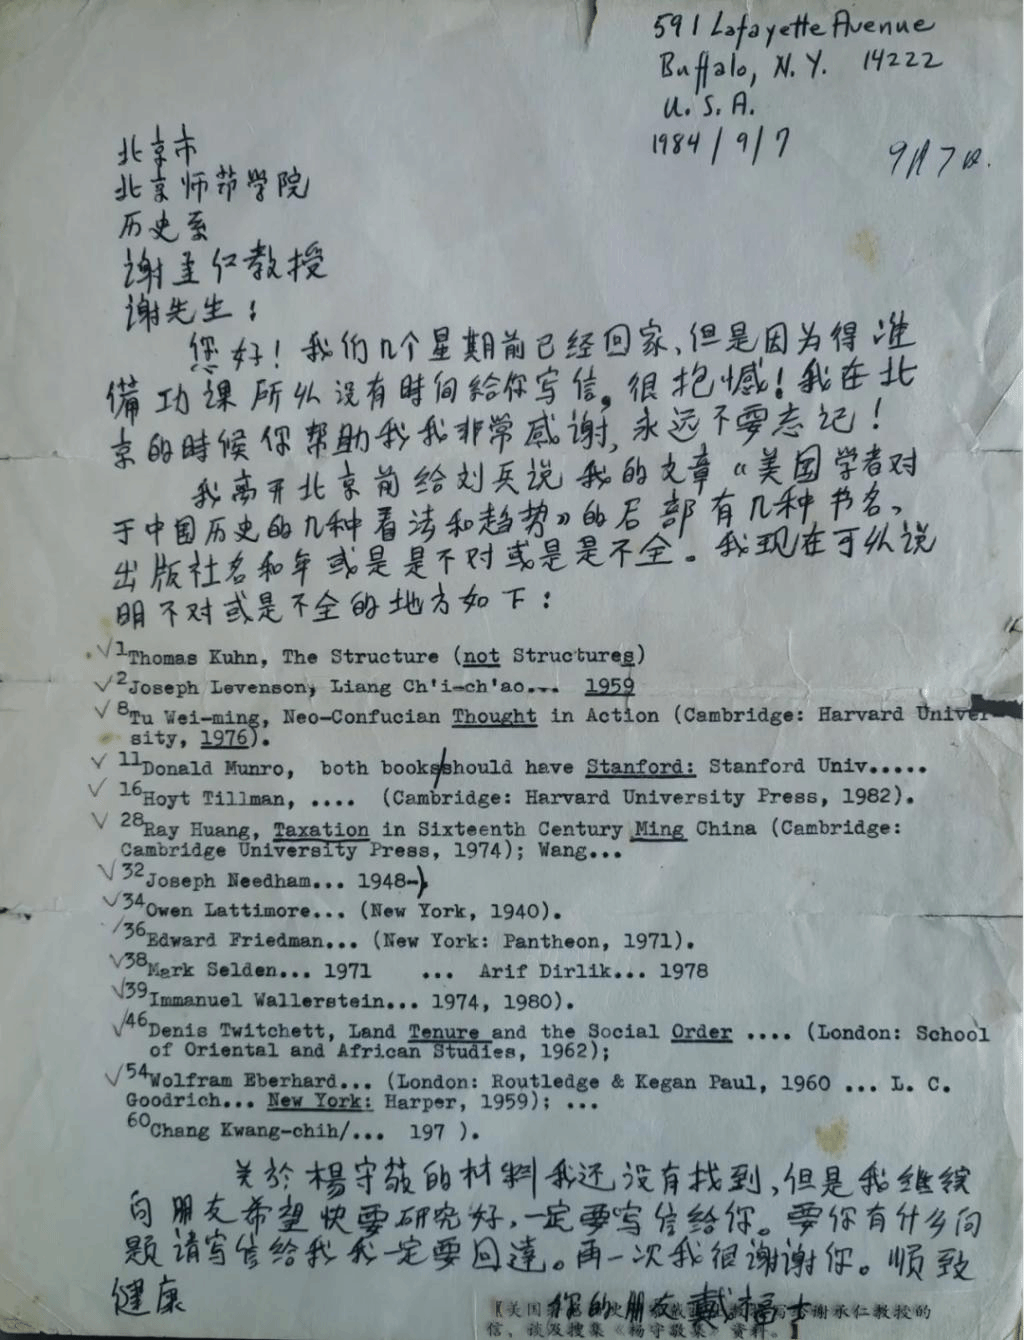 591 Lafayette Avenue
Buffalo, N.Y. 14222
U.S.A.
1984/9/7
9月7日.
北京市
北京师范学院
历史系
谢承仁教授
谢先生：
您好！我们几个星期前已经回家、但是因为得准
備功课所以没有时间给你写信。很抱憾！我在北
京的時候你帮助我我非常感谢，永远不要忘记！
我离开北京前给刘兵说我的文章《美国学者对
于中国历史的几种看法和趋势》的后部有几种书名、
出版社名和年或是是不对或是是不全。我现在可以说
明不对或是不全的地方如下：
√1Thomas Kuhn, The Structure (not Structures)
√2Joseph Levenson, Liang Ch'i-ch'ao... 1959
√8Tu Wei-ming, Neo-Confucian Thought in Action (Cambridge: Harvard Univer-
sity, 1976).
√11Donald Munro, both books/should have Stanford: Stanford Univ.....
√16Hoyt Tillman, .... (Cambridge: Harvard University Press, 1982).
√28Ray Huang, Taxation in Sixteenth Century Ming China (Cambridge:
Cambridge University Press, 1974); Wang...
√32Joseph Needham... 1948-)
√34Owen Lattimore... (New York, 1940).
/36Edward Friedman... (New York: Pantheon, 1971).
√38Mark Selden... 1971 ... Arif Dirlik... 1978
√39Immanuel Wallerstein... 1974, 1980).
√46Denis Twitchett, Land Tenure and the Social Order .... (London: School
of Oriental and African Studies, 1962);
√54Wolfram Eberhard... (London: Routledge & Kegan Paul, 1960 ... L. C.
Goodrich... New York: Harper, 1959); ...
60Chang Kwang-chih/... 197 ).
关於楊守敬的材料我还没有找到，但是我继续
向朋友希望快要研究好，一定要写信给你。要你有什么问
题请写信给我我一定要回達。再一次我很谢谢你。顺致
健康
你的朋友 戴福士
【美国 谢承仁教授的
信，谈及搜集《杨守敬集》资料。